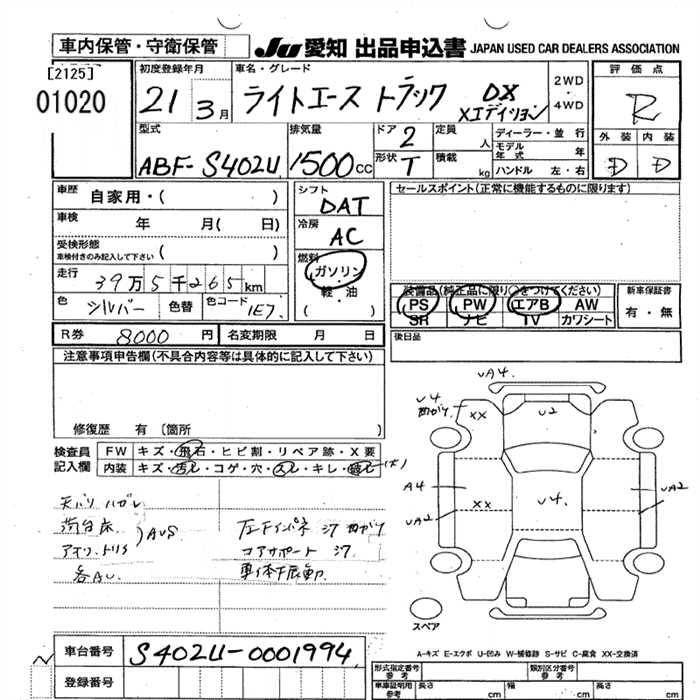 車内保管・守衛保管
JU 愛知 出品申込書 JAPAN USED CAR DEALERS ASSOCIATION
[2125]
01020
初度登録年月
21 3月
車名・グレード
ライトエース トラック DX
Xエディション
2WD
・
4WD
評価点
R
外装 内装
D D
型式
ABF-S402U
排気量
1500cc
ドア 2
形状 T
定員 人
積載 kg
ディーラー・並行
モデル年式 年
ハンドル 左・右
車歴 自家用・( )
車検 年 月( 日)
受検形態
車検付きのみ記入して下さい ( )
走行 39万5千265km
色 シルバー 色替 色コード 1E7
R券 8000円 名変期限 月 日
シフト
DAT
冷房
AC
燃料
ガソリン
軽・油
( )
セールスポイント(正常に機能するものに限ります)
装備品(純正品に限り○をつけてください)
PS PW エアB AW
SR ナビ TV カワシート
新車保証書
有・無
後日品
注意事項申告欄(不具合内容等は具体的に記入して下さい)
修復歴 有 〔箇所 〕
検査員
記入欄
FW キズ・飛石・ヒビ割・リペア跡・X要
内装 キズ・汚レ・コゲ・穴・スレ・キレ・破レ(大)
天バリ ハガレ
荷台床
アオリ、トリイ
各AU
AUS
左Fインパネ シワ 曲ガリ
コアサポート シワ
車体下廻
UA4
U4
曲ガリ
XX
U2
A4
XX
U4
UA2
UA2
スペア
A-キズ E-エクボ U-凹み W-補修跡 S-サビ C-腐食 XX-交換済
車台番号 S402U-0001994
登録番号
形式指定番号 類別区分番号
車庫証明用参考 長さ cm 幅 cm 高さ cm